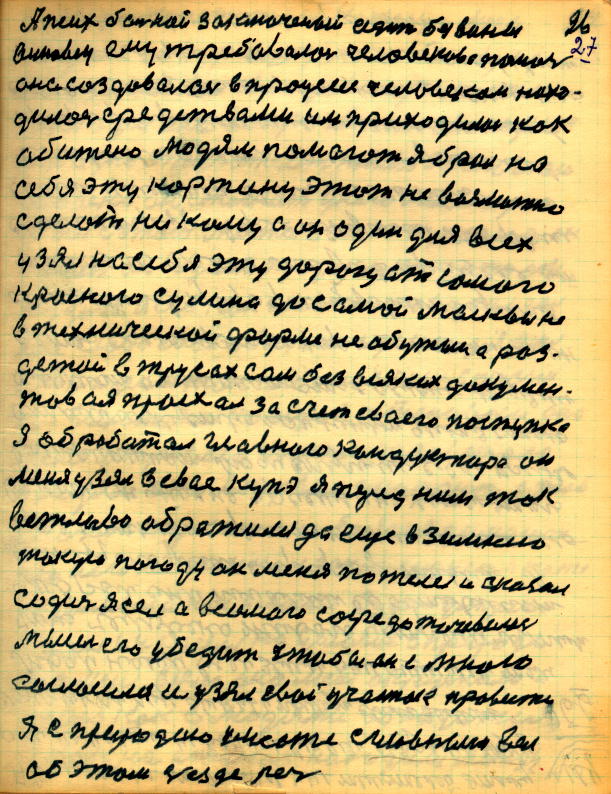 26
27
А псих больной заключеный
ему требовалос человекова помоч
она создовалас в процесе человеком нахо-
дилос средствами им приходилос как
обижено людям помогат я брал на
себя эту картину Этот не возможно
сделат ни кому а он один для всех
узял на себя эту дорогу ат самого
красного сулина до самой масквы не
в технической форми не обутым а роз-
детой в трусах сам без всяких докумен-
тов а я проехал за счет сваего поступка
Я обработал главного кандуктора он
меня узял в свае купэ я перед ним так
вежливо обратился да еще в зимнею
такую погоду он меня пожелел и сказал
садис я сел а
мысил его убедит чтобы он с много
согласился и узял свой участок провести
Я с природою вместе с главным вел
об этом везде реч